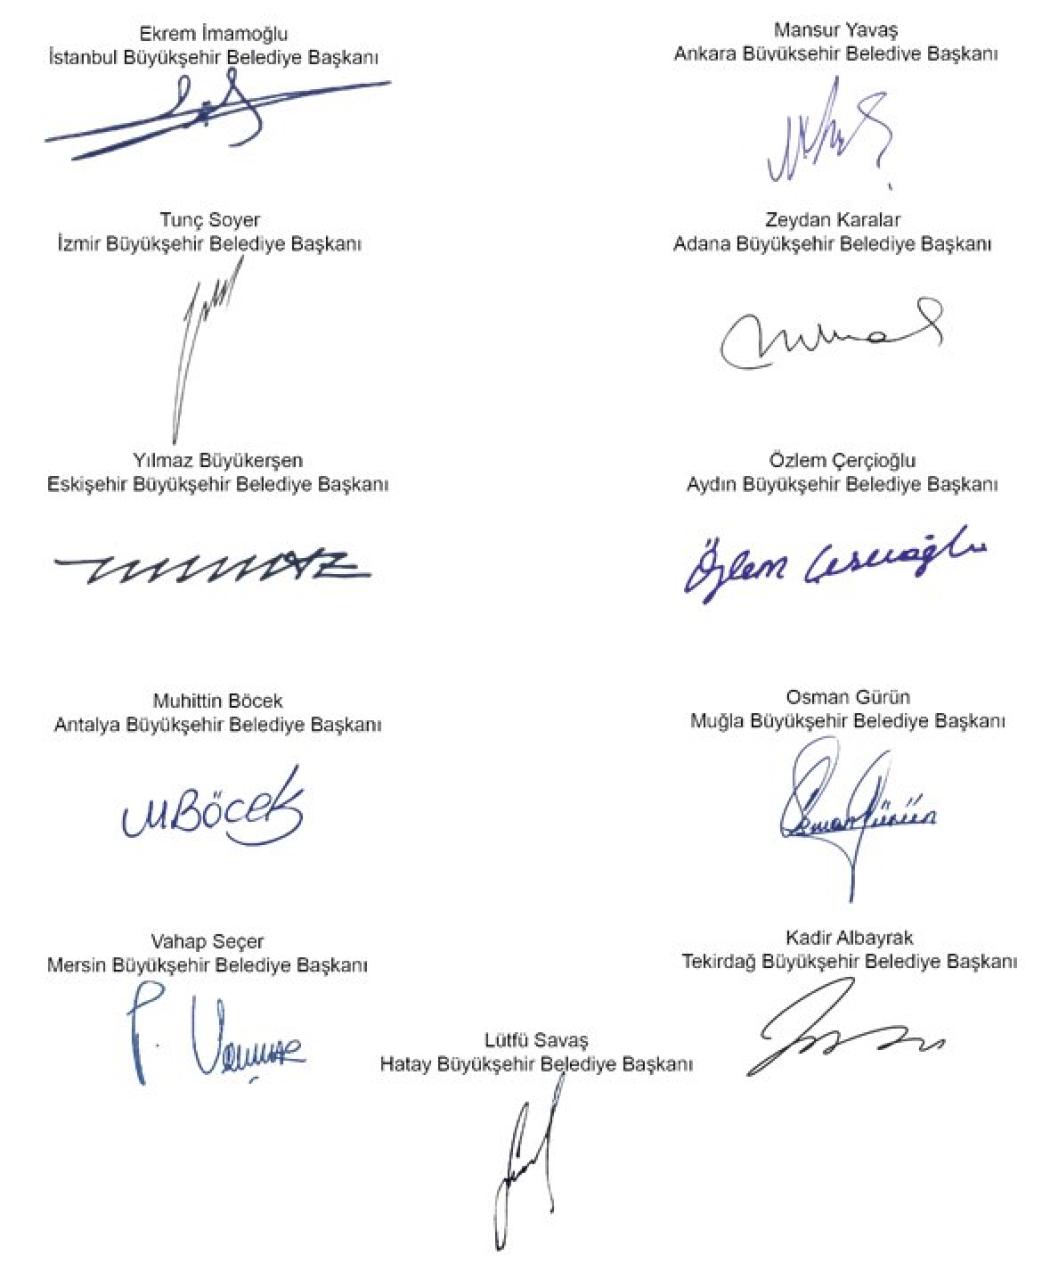 Ekrem İmamoğlu
İstanbul Büyükşehir Belediye Başkanı
Mansur Yavaş
Ankara Büyükşehir Belediye Başkanı
Tunç Soyer
İzmir Büyükşehir Belediye Başkanı
Zeydan Karalar
Adana Büyükşehir Belediye Başkanı
Yılmaz Büyükerşen
Eskişehir Büyükşehir Belediye Başkanı
Özlem Çerçioğlu
Aydın Büyükşehir Belediye Başkanı
Özlem Çerçioğlu
Muhittin Böcek
Antalya Büyükşehir Belediye Başkanı
M Böcek
Osman Gürün
Muğla Büyükşehir Belediye Başkanı
Osman Gürün
Vahap Seçer
Mersin Büyükşehir Belediye Başkanı
Kadir Albayrak
Tekirdağ Büyükşehir Belediye Başkanı
Lütfü Savaş
Hatay Büyükşehir Belediye Başkanı